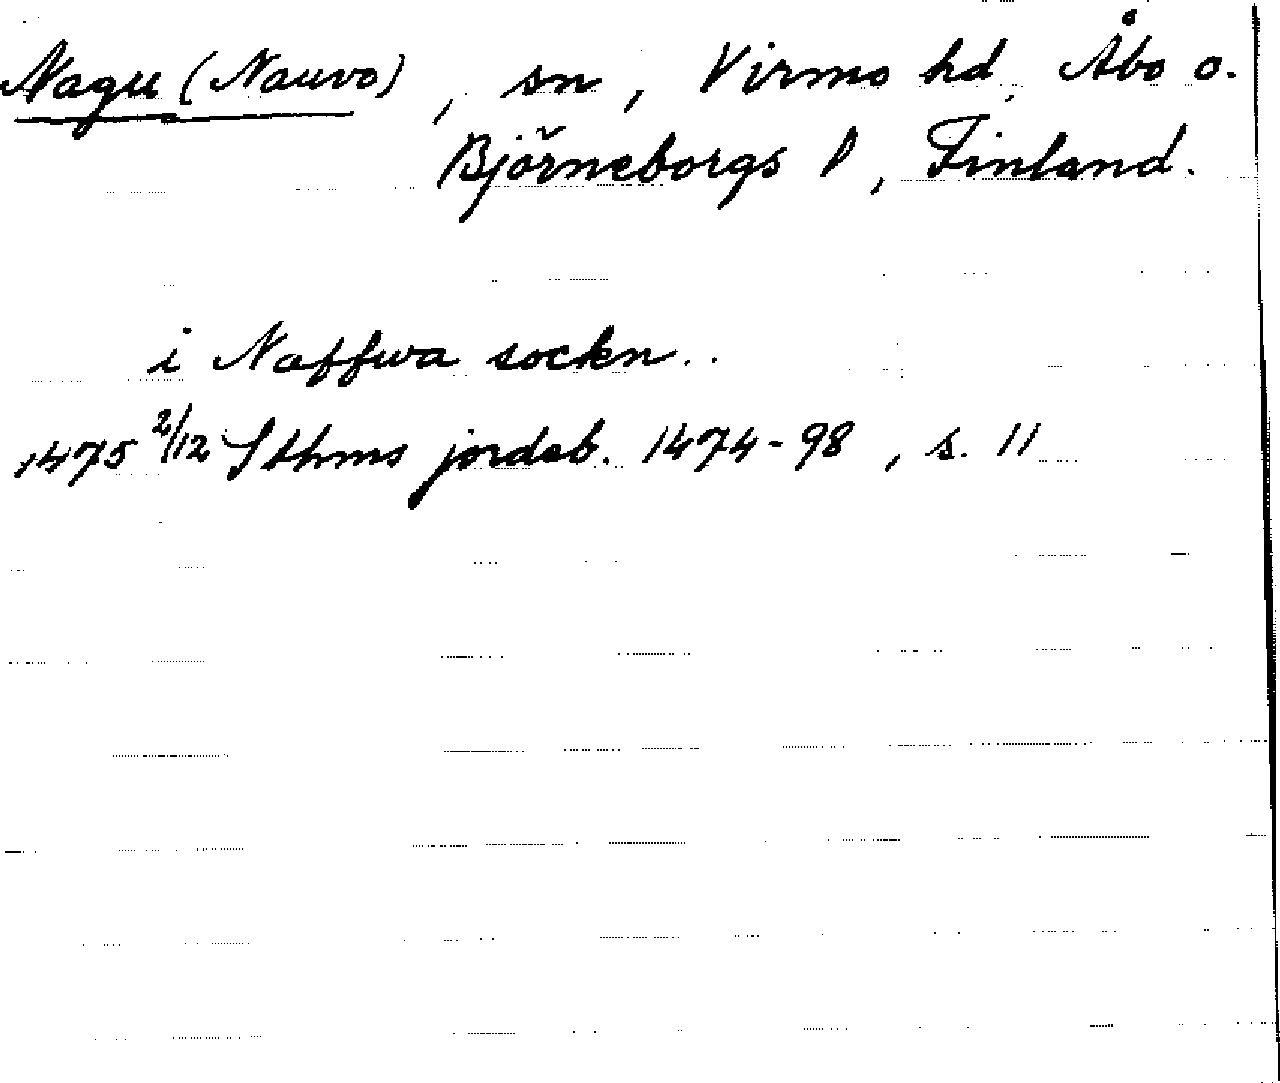 Nagu (Nauvo), sn, Virmo hd, Åbo o.
Björneborgs l, Finland.
i Naffwa sockn..
1475 2/12 Sthms jordeb. 1474-98, s. 11